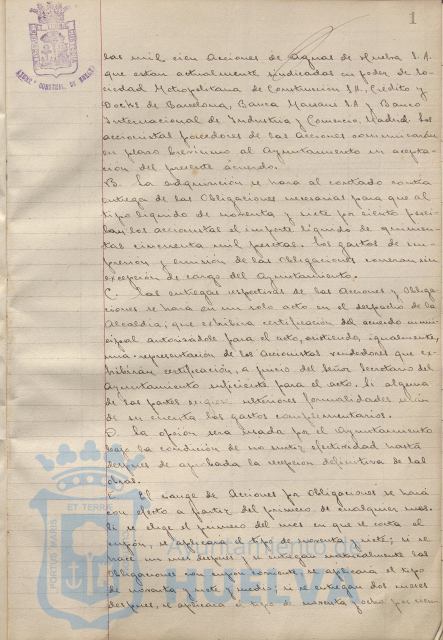 1
las mil cien Acciones de Aguas de Huelva S.A.
que estan actualmente sindicadas en poder de So-
ciedad Metropolitana de Construcción S.A, Crédito y
Docks de Barcelona, Banca Marsans S.A y Banco
Internacional de Industria y Comercio, Madrid. Los
accionistas poseedores de las acciones comunicarán
en plazo brevísimo al Ayuntamiento su acepta-
ción del presente acuerdo.
B. La adquisición se hará al contado contra
entrega de las Obligaciones necesarias para que al
tipo líquido de noventa y siete por ciento perci-
ban los accionistas el importe líquido de quinien-
tas cincuenta mil pesetas. Los gastos de im-
presión y emisión de las Obligaciones correrán sin
excepción de cargo del Ayuntamiento.
C. Las entregas respectivas de las Acciones y Obliga-
ciones se hará en un solo acto en el despacho de la
Alcaldía; que exhibirá certificación del acuerdo muni-
cipal autorizándole para el acto, asistiendo, igualmente,
una representación de los Accionistas vendedores que ex-
hibirán certificación, a juicio del Señor Secretario del
Ayuntamiento suficiente para el acto. Si alguna
de las partes exigiera ulteriores formalidades serán
de su cuenta los gastos complementarios.
D. La opción será usada por el Ayuntamiento
bajo la condición de no surtir efectividad hasta
después de aprobada la recepción definitiva de las
obras.
E. El canje de Acciones por Obligaciones se hará
con efecto a partir del primero de cualquier mes.
Si se elige el primero del mes en que se corta el
cupón, se aplicará el tipo de noventa y siete; si se
hace un mes después y se entregan naturalmente las
Obligaciones con cupón corriente, se aplicará el tipo
de noventa y siete y medio; si se entregan dos meses
después, se aplicará el tipo de noventa y ocho por cien-
PORTUS MARIS
ET TERRE
Ayuntamiento de
HUELVA